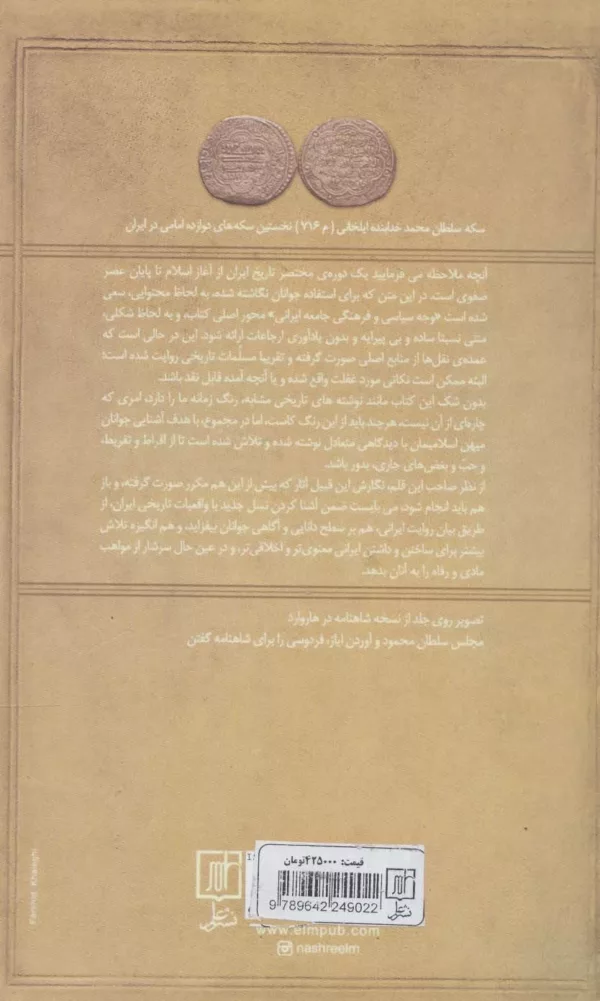 سکه سلطان محمد خدابنده ایلخانی (م ۷۱۶) نخستین سکه‌های دوازده امامی در ایران
آنچه ملاحظه می فرمایید یک دوره‌ی مختصر تاریخ ایران از آغاز اسلام تا پایان عصر
صفوی است. در این متن که برای استفاده جوانان نگاشته شده، به لحاظ محتوایی، سعی
شده است «وجه سیاسی و فرهنگی جامعه ایرانی» محور اصلی کتاب، و به لحاظ شکلی،
متنی نسبتا ساده و بی پیرایه و بدون یادآوری ارجاعات ارائه شود. این در حالی است که
عمده‌ی نقل‌ها از منابع اصلی صورت گرفته و تقریبا مسلّمات تاریخی روایت شده است؛
البته ممکن است نکاتی مورد غفلت واقع شده و یا آنچه آمده قابل نقد باشد.
بدون شک این کتاب مانند نوشته های تاریخی مشابه، رنگ زمانه ما را دارد، امری که
چاره‌ای از آن نیست، هرچند باید از این رنگ کاست، اما در مجموع، با هدف آشنایی جوانان
میهن اسلامیمان با دیدگاهی متعادل نوشته شده و تلاش شده است تا از افراط و تفریط،
و حبّ و بغض‌های جاری، بدور باشد.
از نظر صاحب این قلم، نگارش این قبیل آثار که پیش از این هم مکرر صورت گرفته، و باز
هم باید انجام شود، می بایست ضمن آشنا کردن نسل جدید با واقعیات تاریخی ایران، از
طریق بیان روایت ایرانی، هم بر سطح دانایی و آگاهی جوانان بیفزاید، و هم انگیزه تلاش
بیشتر برای ساختن و داشتن ایرانی معنوی‌تر و اخلاقی‌تر، و در عین حال سرشار از مواهب
مادی و رفاه را به آنان بدهد.
تصویر روی جلد از نسخه شاهنامه در هاروارد
مجلس سلطان محمود و آوردن ایاز، فردوسی را برای شاهنامه گفتن
قیمت: ۴۲۵۰۰۰تومان
9 789642 249022
نشر علم
www.elmpub.com
nashreelm